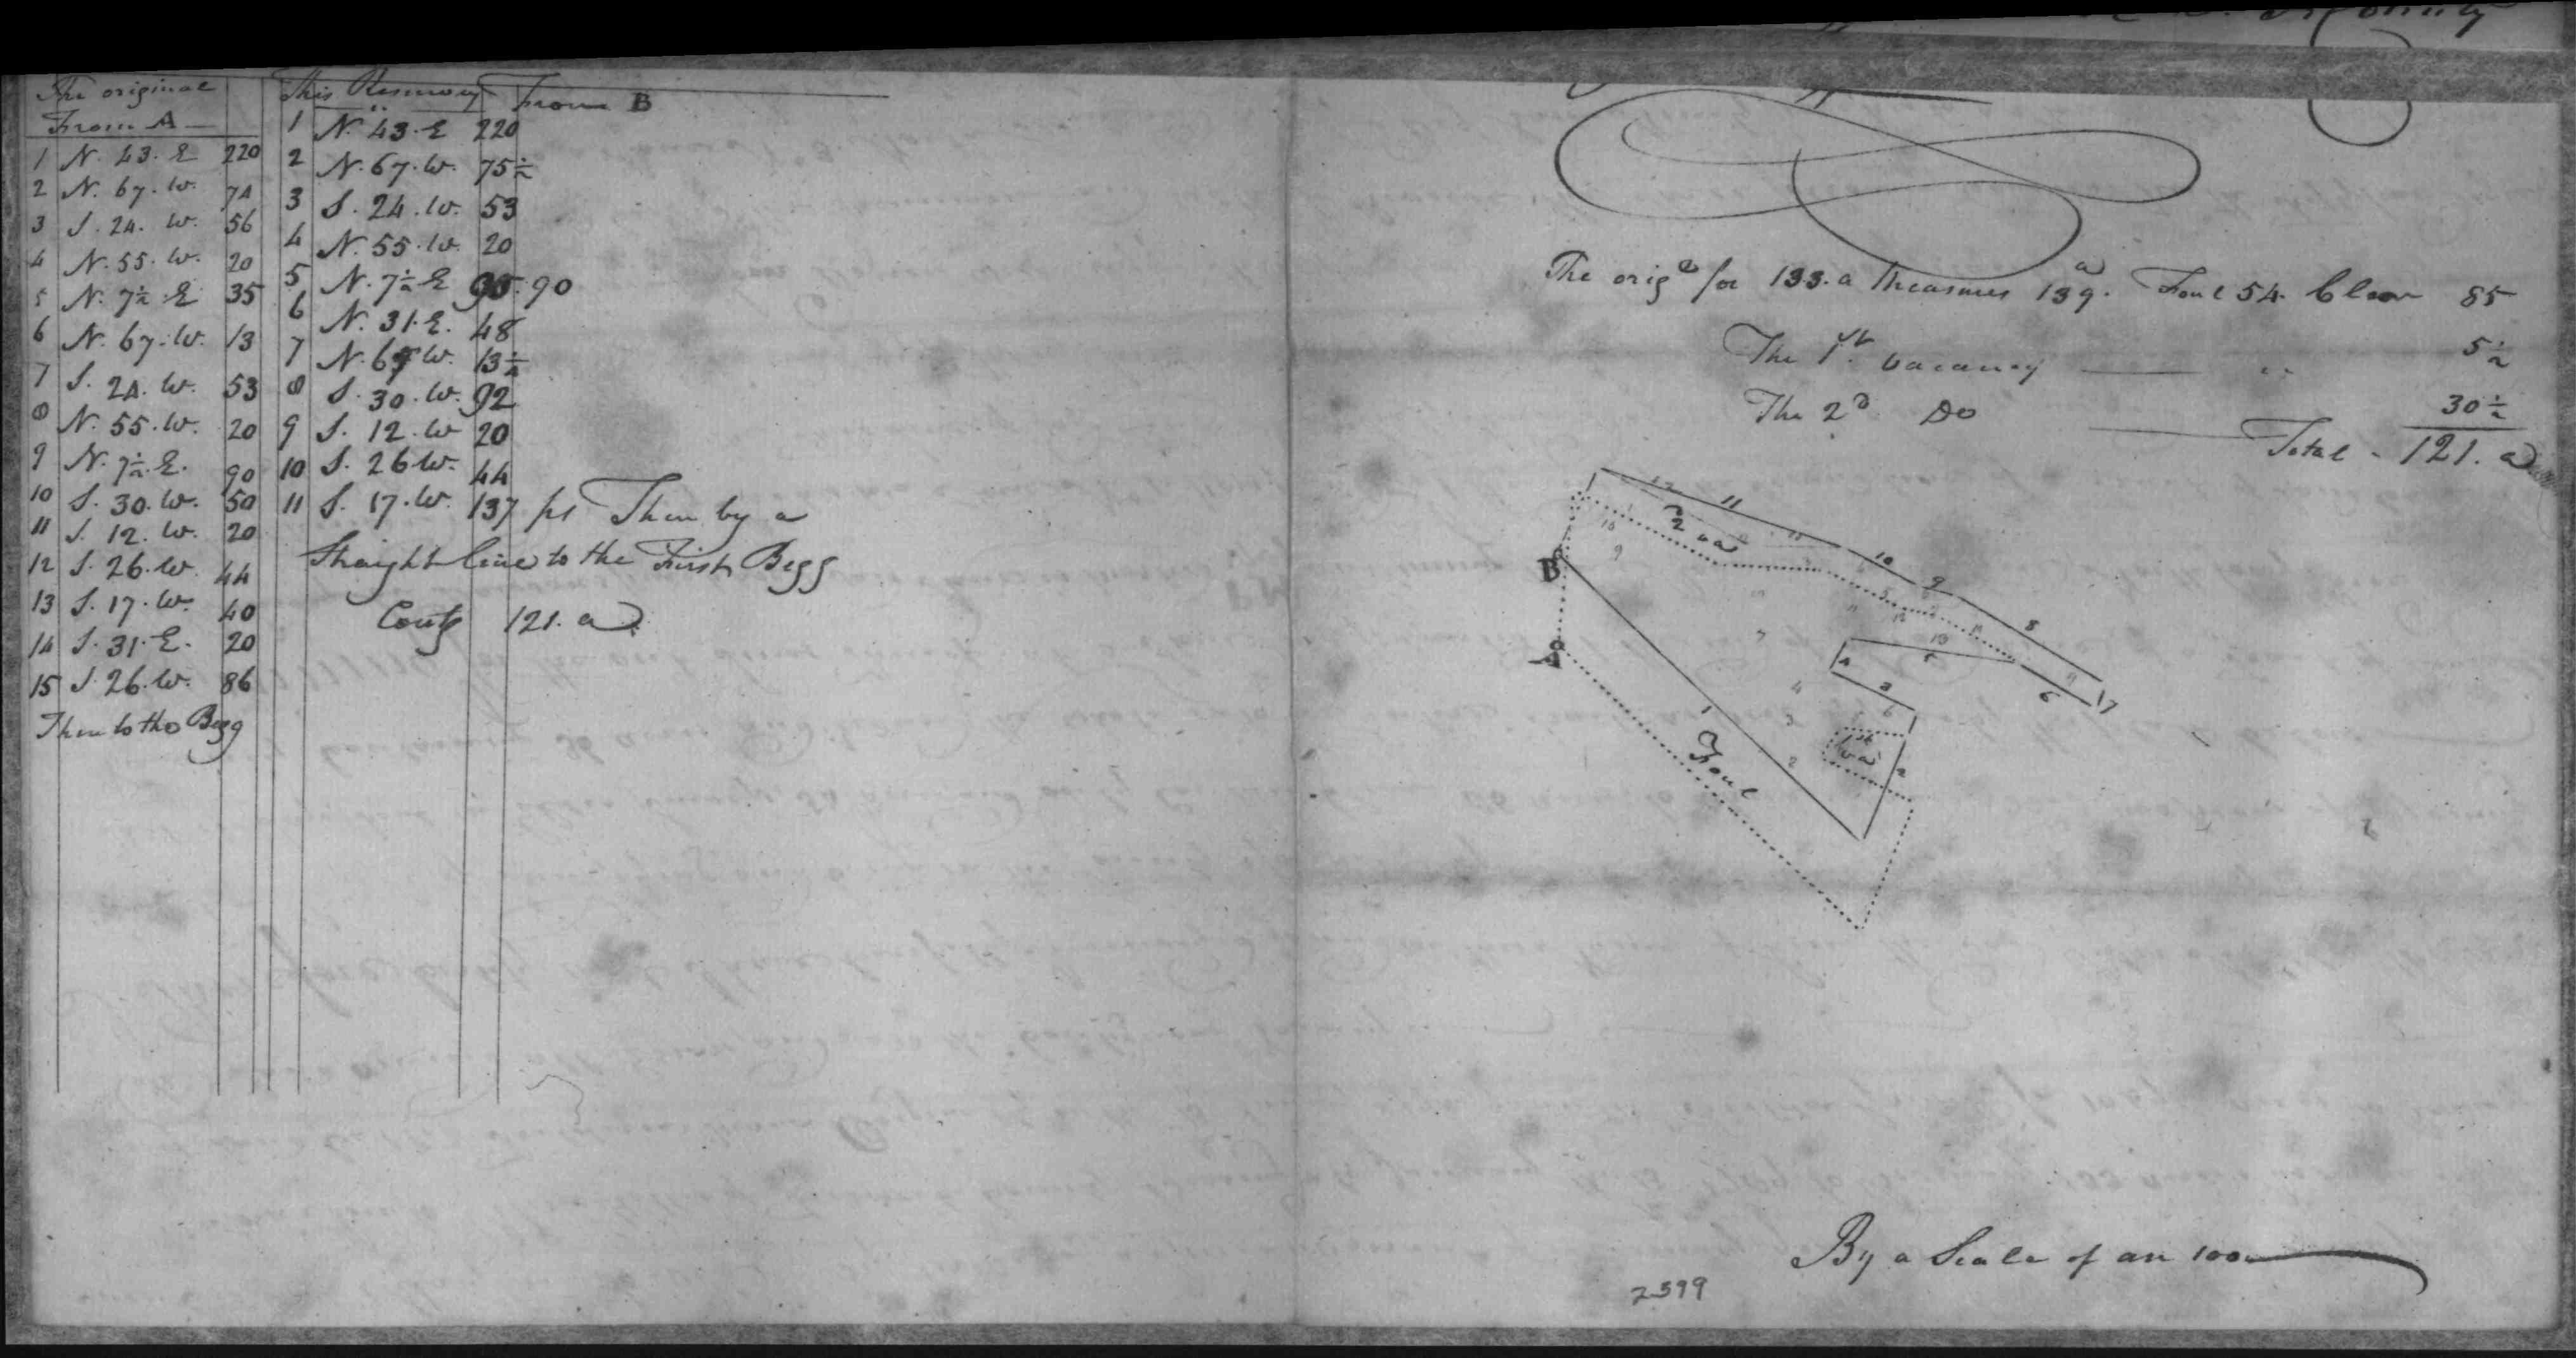 The original
From A
1 N. 43. E 220
2 N. 67. W. 74
3 S. 24. W. 56
4 N. 55. W. 20
5 N. 7½. E 35
6 N. 67. W. 13
7 S. 24. W. 53
8 N. 55. W. 20
9 N. 7½. E. 90
10 S. 30. W. 50
11 S. 12. W. 20
12 S. 26. W. 44
13 S. 17. W. 40
14 S. 31. E. 20
15 S. 26. W. 86
Then to the Begg
This Resurvey From B
1 N. 43. E 220
2 N. 67. W. 75½
3 S. 24. W. 53
4 N. 55. W. 20
5 N. 7½ E 90
6 N. 31. E. 48
7 N. 67 W. 13½
8 S. 30. W. 92
9 S. 12. W 20
10 S. 26 W. 44
11 S. 17. W. 137 ps Then by a
Straight line to the First Begg
Contg 121. a
The orige for 133. a Measures 139. a Foul 54. Clear 85
The 1st vacancy 5½
The 2d Do 30½
Total - 121. a
11
2d va
10
9
8
7
6
5
4
3
2
1
1st va
B
A
Foul
By a Scale of an 100
2599